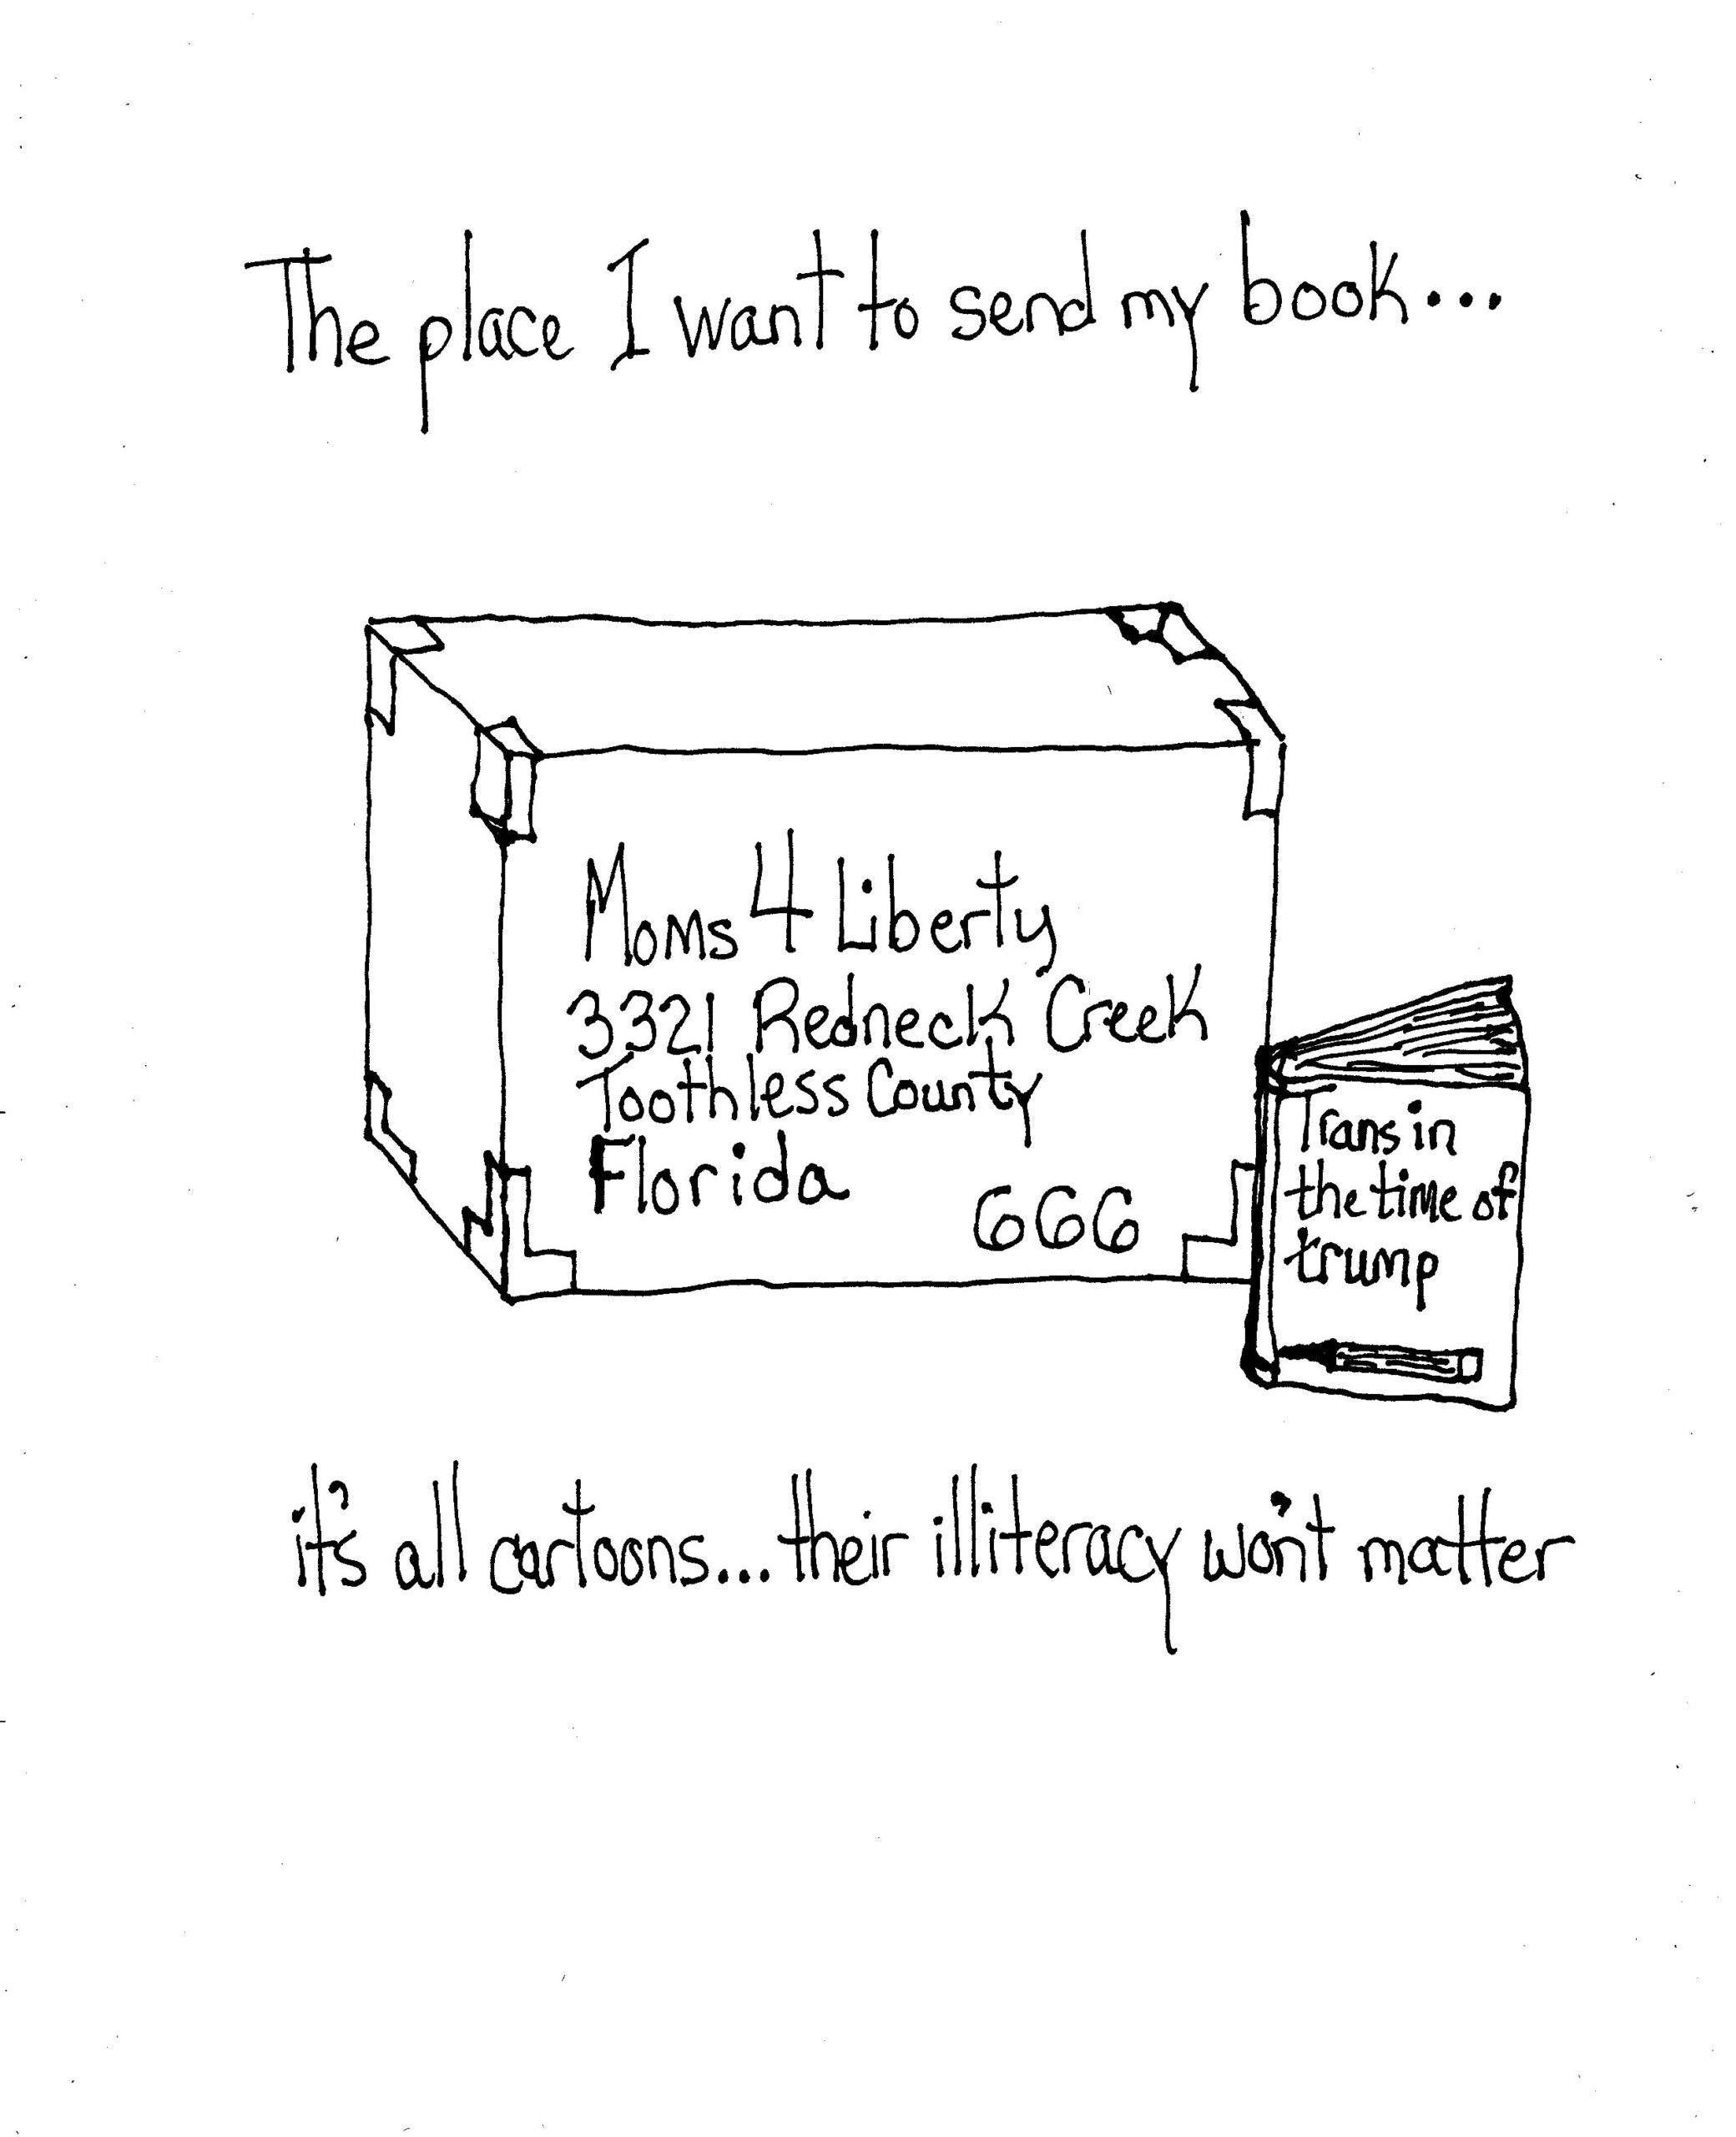 The place I want to send my book...
Moms 4 Liberty
3321 Redneck Creek
Toothless County
Florida 666
Trans in
the time of
trump
it's all cartoons... their illiteracy won't matter